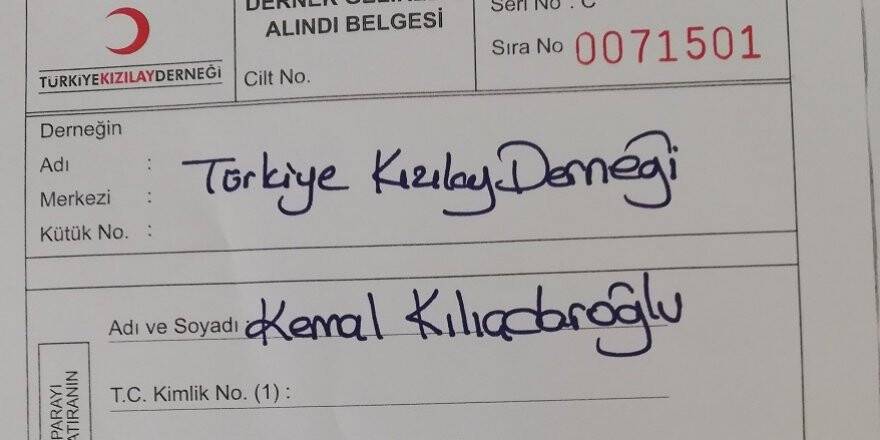 DERNEK GELİRLERİ
ALINDI BELGESİ
Cilt No.
Seri No : C
Sıra No 0071501
TÜRKİYEKIZILAYDERNEĞİ
Derneğin
Adı :
Merkezi :
Kütük No. :
Türkiye Kızılay Derneği
Adı ve Soyadı : Kemal Kılıçdaroğlu
T.C. Kimlik No. (1) :
PARAYI
YATIRANIN